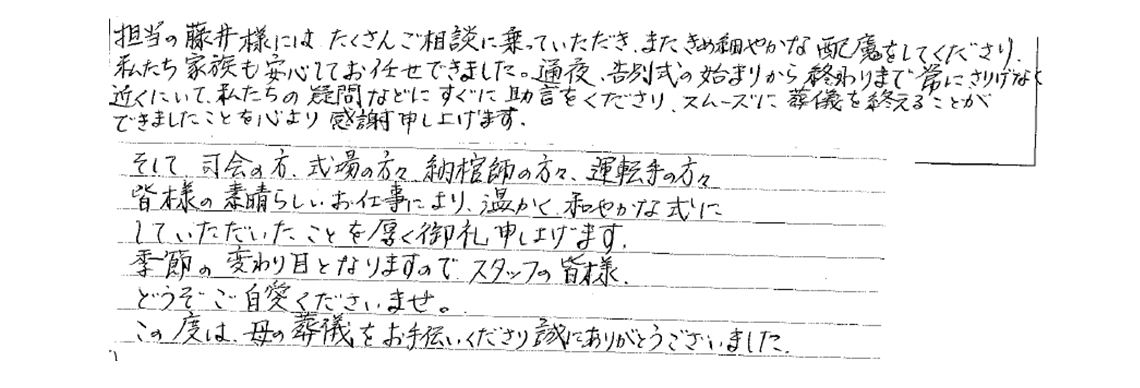 担当の藤井様には たくさんご相談に乗っていただき、またきめ細やかな配慮をしてくださり、
私たち家族も安心してお任せできました。通夜、告別式の始まりから終わりまで常にさりげなく
近くにいて、私たちの疑問などにすぐに助言をくださり、スムーズに葬儀を終えることが
できましたことを心より感謝申し上げます。
そして、司会の方、式場の方々、納棺師の方々、運転手の方々
皆様の素晴らしいお仕事により、温かく、和やかな式に
していただいたことを厚く御礼申し上げます。
季節の変わり目となりますので、スタッフの皆様、
どうぞご自愛くださいませ。
この度は、母の葬儀をお手伝いくださり誠にありがとうございました。